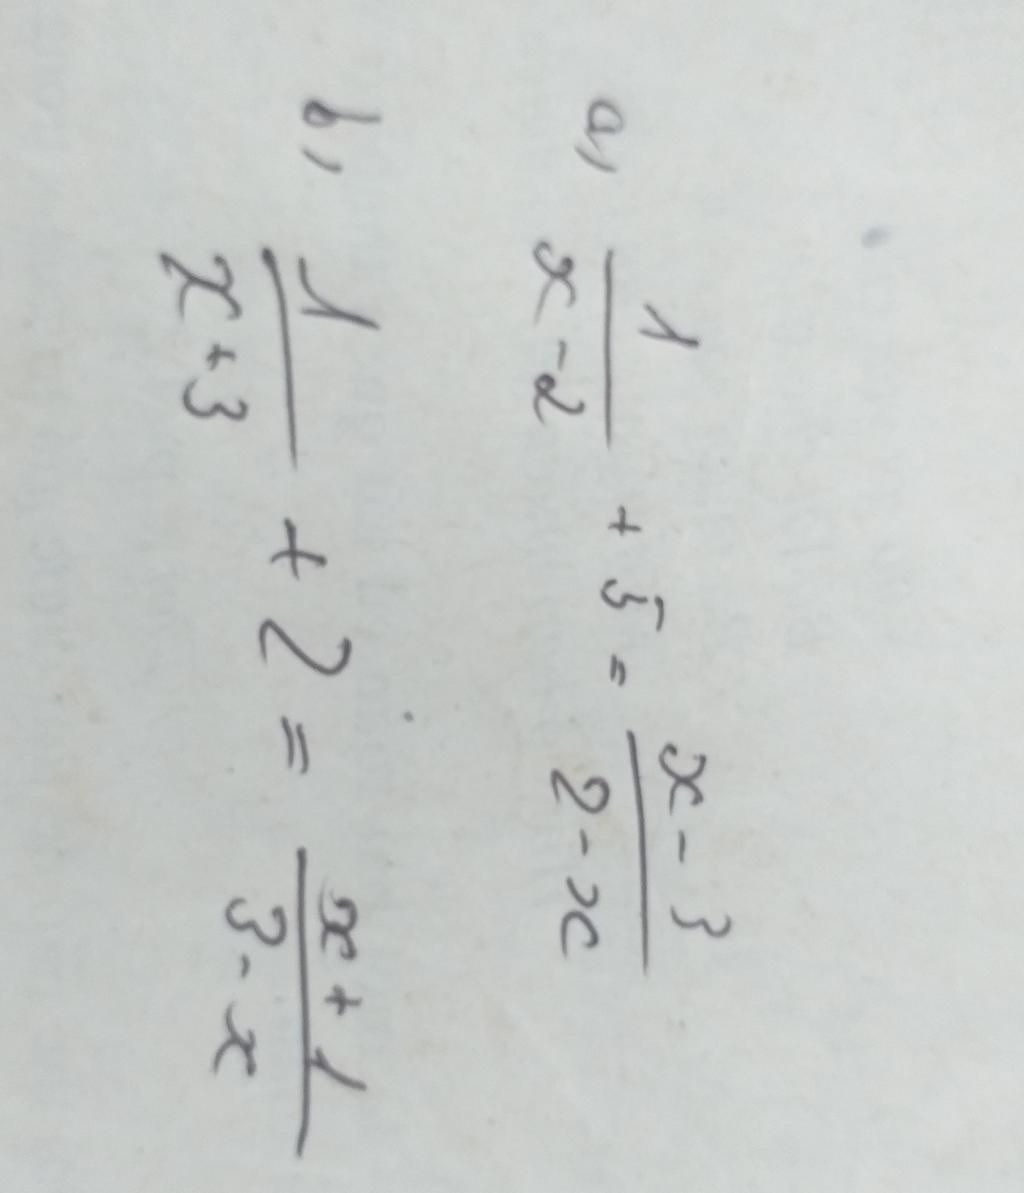 a, 1/(x-2) + 5 = (x-3)/(2-x)
b, 1/(x+3) + 2 = (x+1)/(3-x)